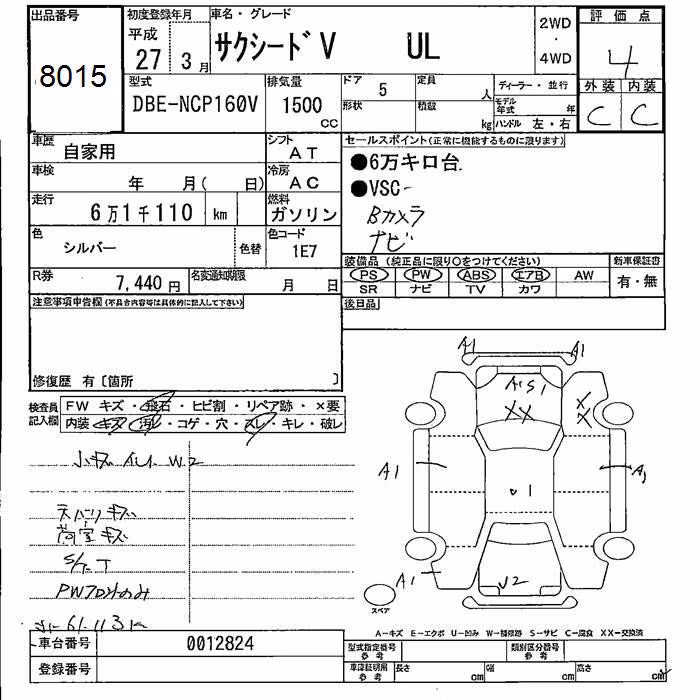 出品番号
8015
初度登録年月
平成
27 3月
車名・グレード
サクシードV UL
2WD
・
4WD
評価点
4
外装 内装
C C
型式
DBE-NCP160V
排気量
1500
cc
ドア 5
定員 人
形状
積載 kg
ディーラー・並行
モデル年式 年
ハンドル 左・右
車歴
自家用
シフト
AT
セールスポイント(正常に機能するものに限ります)
●6万キロ台
●VSC
Bカメラ
ナビ
車検
年 月( 日)
冷房
AC
走行
6万1千110 km
燃料
ガソリン
色
シルバー
色替
色コード
1E7
装備品(純正品に限り○をつけてください)
PS PW ABS エアB AW
SR ナビ TV カワ
新車保証書
有・無
R券
7,440円
名変通知期限
月 日
後日品
注意事項申告欄(不具合内容等は具体的に記入して下さい)
修復歴 有〔箇所 〕
検査員記入欄
FW キズ・飛石・ヒビ割・リペア跡・×要
内装 キズ・汚レ・コゲ・穴・スレ・キレ・破レ
小キズ AU W2
天バリキズ
荷室キズ
PWフロントのみ
A1 A1
A1 S1
XX
X
X
A1
A1
1
A1
V2
スペア
A―キズ E―エクボ U―凹み W―補修跡 S―サビ C―腐食 XX―交換済
車台番号
0012824
登録番号
型式指定番号
参考
類別区分番号
参考
車庫証明用
参考
長さ cm
幅 cm
高さ cm